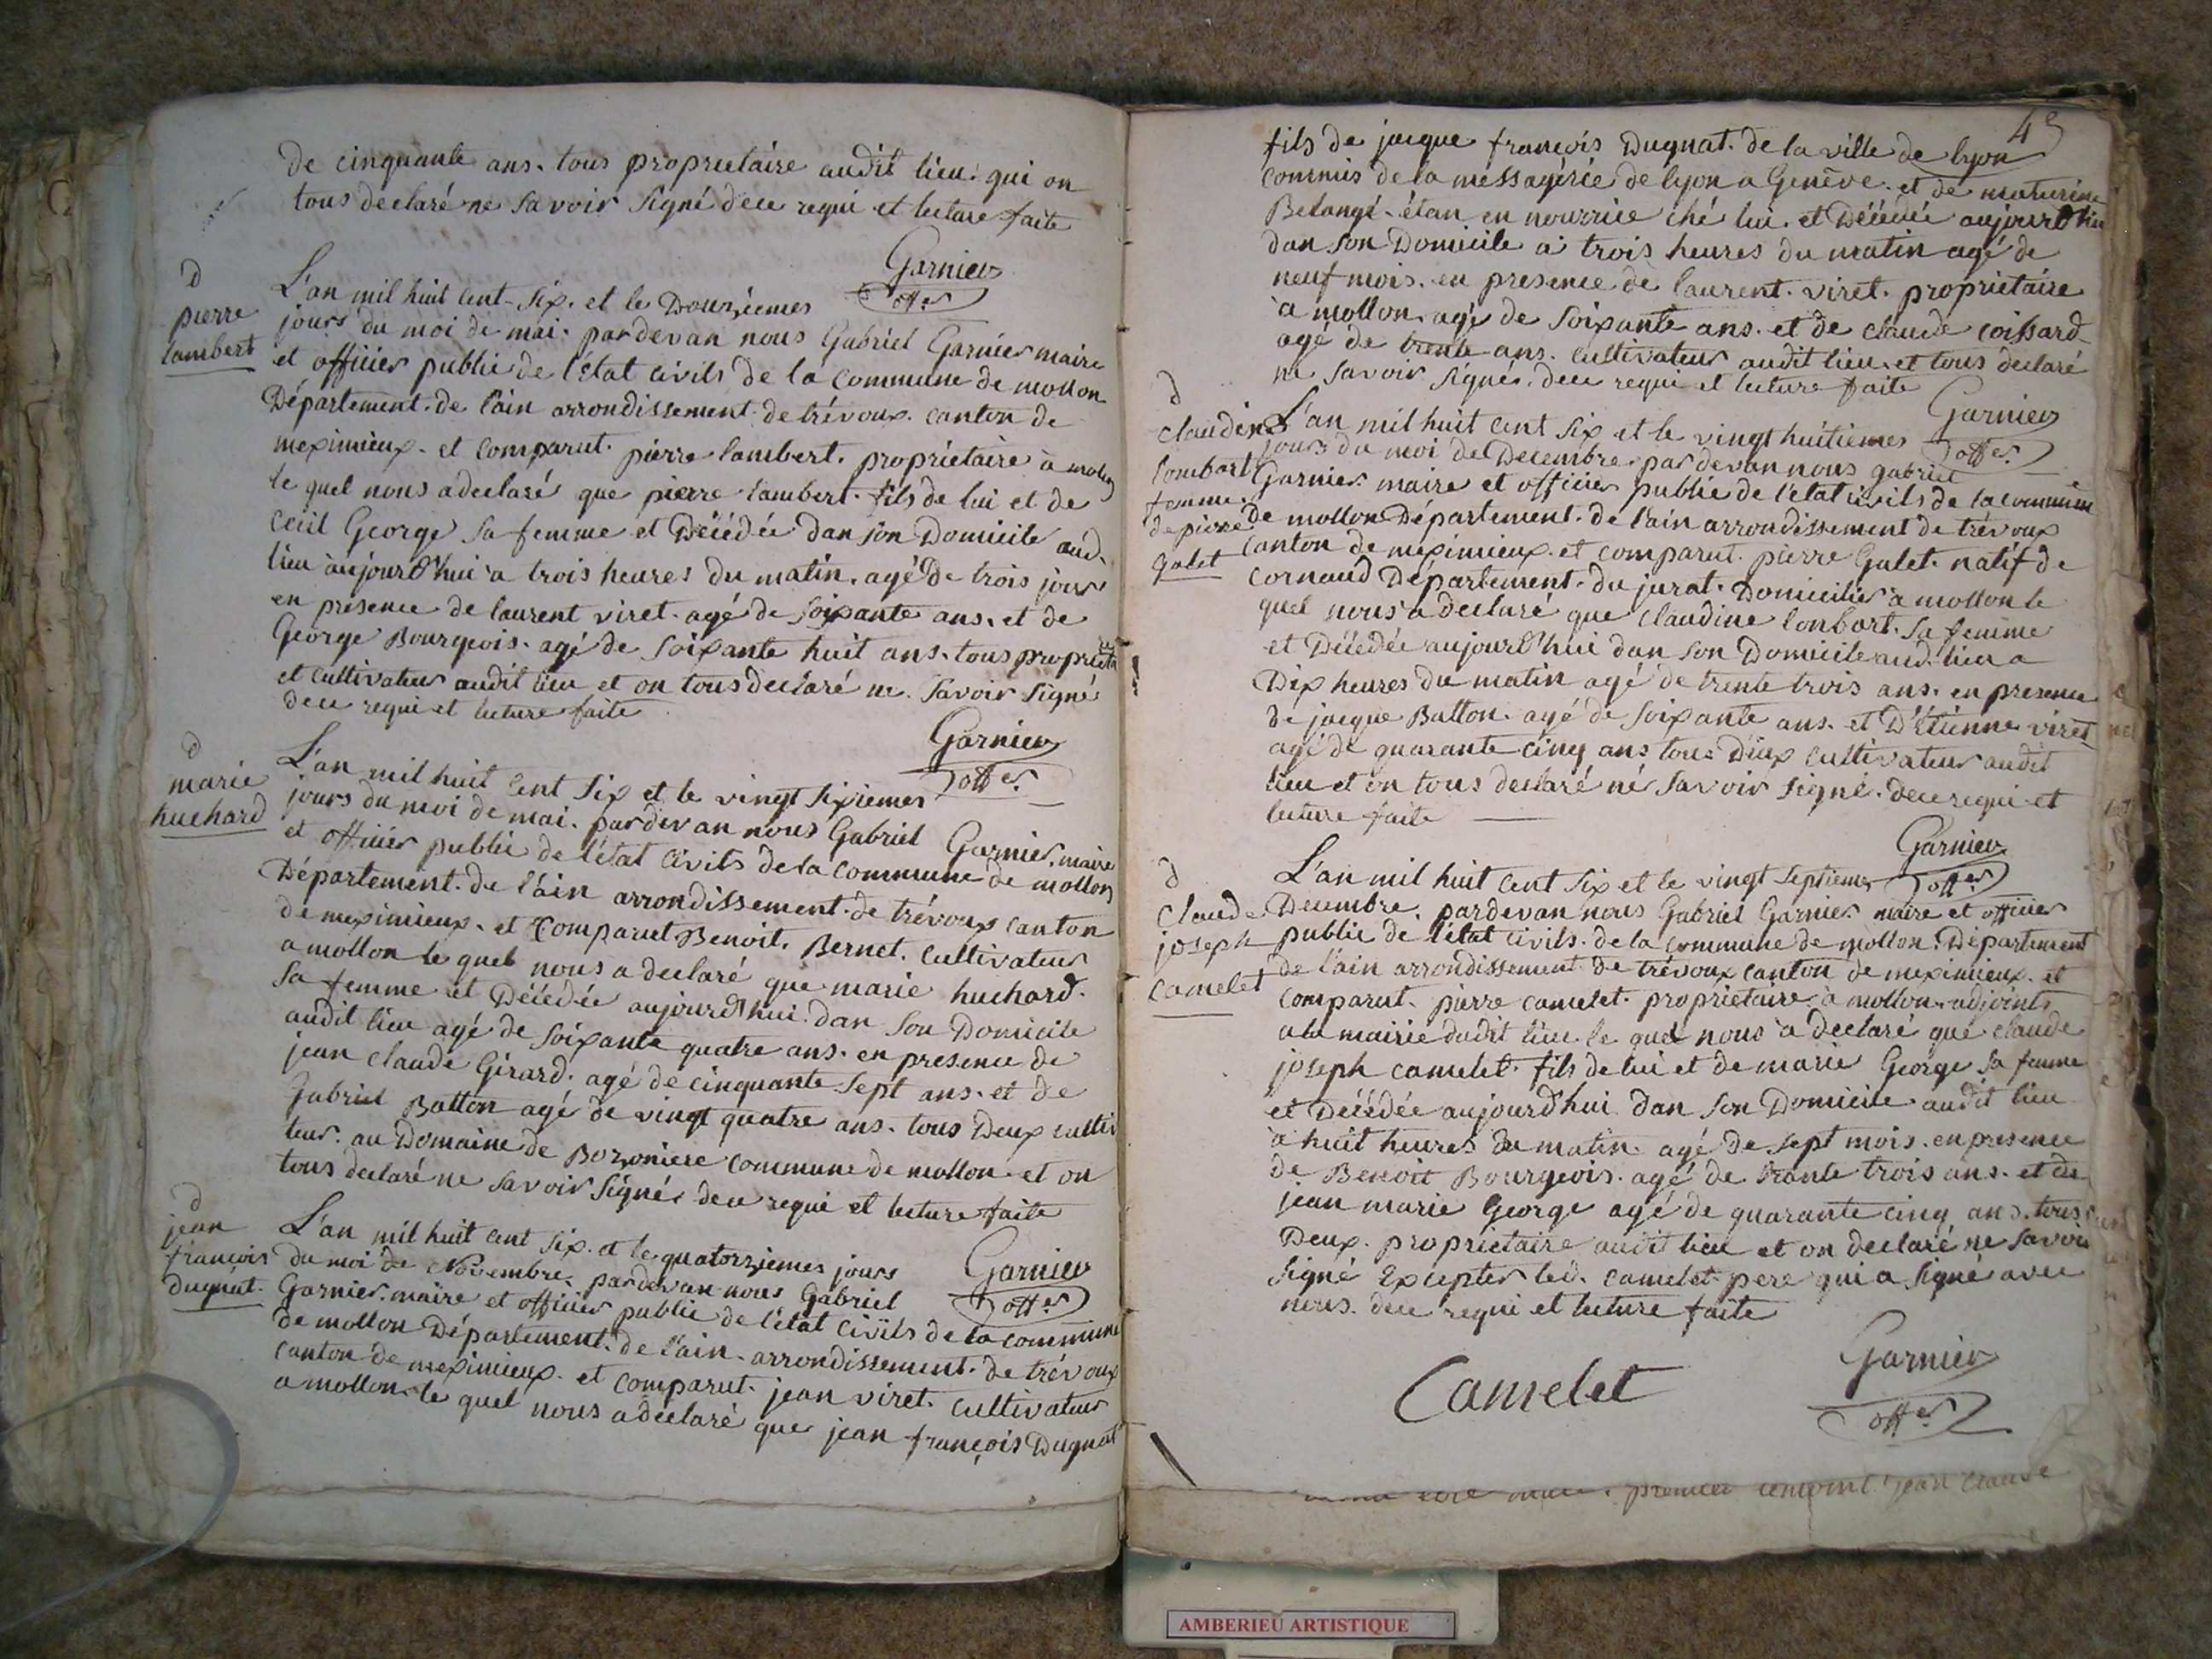 de cinquante ans. tous proprietaire audit lieu. qui on
tous declaré ne savoir signé dece requi et lecture faite
Garnier
offer
d
pierre
lambert
L'an mil huit cent six. et le Douziemes
jours du moi de mai. pardevan nous Gabriel Garnier maire
et officier public de l'état civils de la commune de mollon
Département. de l'ain arrondissement. de trévoux. canton de
meximieux. et comparut. pierre lambert. propriétaire à mollon
le quel nous a declaré que pierre lambert. fils de lui et de
Cecil George sa femme et Décédée dan son Domicile aud.
lieu aujourd'hui a trois heures du matin. agé de trois jours
en presence de laurent viret. agé de soixante ans. et de
George Bourgeois. agé de soixante huit ans. tous proprieta
et cultivateur audit lieu et on tous declaré ne savoir signé
dece requi et lecture faite
Garnier
offer.
d
marie
huchard
L'an mil huit cent six et le vingt sixiemes
jours du moi de mai. pardevan nous Gabriel Garnier. maire
et officier public de l'état civils de la commune de mollon
Département. de l'ain arrondissement. de trévoux canton
de meximieux. et comparut Benoit. Bernet. cultivateur
a mollon le quel nous a declaré que marie huchard.
sa femme et Décédée aujourd'hui dan son Domicile
audit lieu agé de soixante quatre ans. en presence de
jean claude Girard. agé de cinquante sept ans. et de
Gabriel Batton agé de vingt quatre ans. tous Deux cultiv
teur. au Domaine de Bozoniere commune de mollon et on
tous declaré ne savoir signé dece requi et lecture faite
Garnier
offer
d
jean
françois
dugnat.
L'an mil huit cent six. et le quatorziemes jours
du moi de Novembre. pardevan nous Gabriel
Garnier. maire et officier public de l'état civils de la commune
de mollon Département. de l'ain. arrondissement. de trévoux
canton de meximieux. et comparut. jean viret. cultivateur
a mollon le quel nous a declaré que jean françois Dugnat
45
fils de jacque françois Dugnat. de la ville de lyon
commis de la messagérie de lyon a Genève. et de maturine
Belangé. étan en nourrice ché lui. et Décédée aujourd'hui
dan son Domicile a trois heures du matin agé de
neuf mois. en presence de laurent. viret. proprietaire
a mollon. agé de soixante ans. et de claude coissard
agé de trente ans. cultivateur audit lieu. et tous declaré
ne savoir signé. dece requi et lecture faite
Garnier
offer.
d
claudine
lombart
femme.
de pierre
galet
L'an mil huit cent six et le vingt huitiemes
jours du moi de Decembre. pardevan nous gabriel
Garnier. maire et officier public de l'état civils de la commune
de mollon Département. de l'ain arrondissement de trévoux
canton de meximieux. et comparut. pierre Galet. natif de
cornaud Département. du jurat. Domicilier a mollon le
quel nous a declaré que claudine lonbart. sa femme
et Décédée aujourd'hui dan son Domicile aud. lieu a
Dix heures du matin agé de trente trois ans. en presence
de jacque Batton. agé de soixante ans. et D'étienne viret
agé de quarante cinq ans tous Deux cultivateur audit
lieu et on tous declaré né savoir signé. dece requi et
lecture faite
Garnier
offer
d
Claude
joseph
camelet
L'an mil huit cent six et le vingt septiemes
Decembre. pardevan nous Gabriel Garnier maire et officier
public de l'état civils. de la commune de mollon. Département
de l'ain arrondissement. de trévoux canton de meximieux. et
comparut. pierre camelet. proprietaire a mollon. adjoints
a la mairie dudit lieu. le quel nous a declaré que claude
joseph camelet. fils de lui et de marie George sa femme
et Décédée aujourd'hui dan son Domicile audit lieu
a huit heures du matin agé de sept mois. en presence
de Benoit Bourgeois. agé de trante trois ans. et de
jean marie George agé de quarante cinq ans. tous
Deux. proprietaire audit lieu et on declaré ne savoir
signé Excepter led. camelet pere qui a signé avec
nous. dece requi et lecture faite
Camelet
Garnier
offer
premier temoint jean claude
AMBERIEU ARTISTIQUE